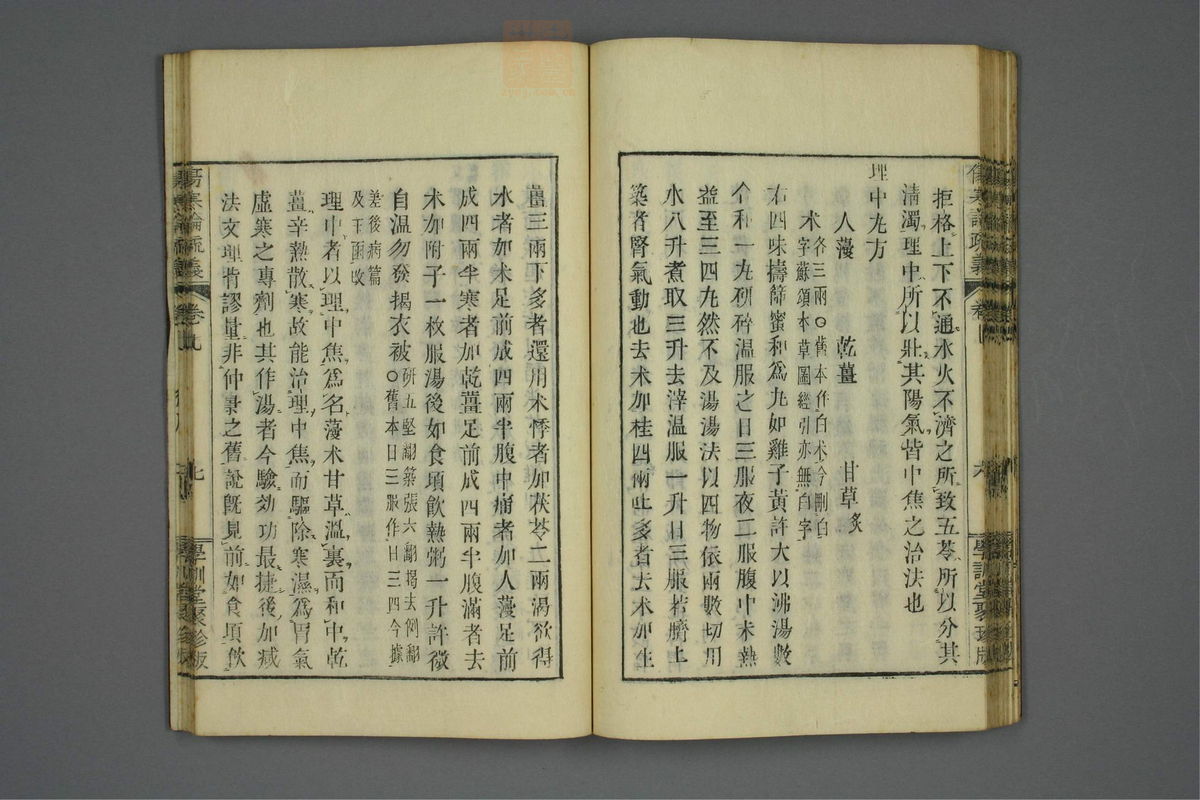 拒格上下不通水火不濟之所致五苓所以分其
淸濁理中所以壯其陽氣皆中焦之治法也
理中丸方
人薓 乾薑 甘草炙
术各三兩○舊本作白术今刪白
字蘇頌本草圖經引亦無白字
右四味擣篩蜜和爲丸如雞子黃許大以沸湯數
合和一丸硏碎溫服之日三服夜二服腹中未熱
益至三四丸然不及湯湯法以四物依兩數切用
水八升煮取三升去滓溫服一升日三服若臍上
築者腎氣動也去术加桂四兩吐多者去术加生
薑三兩下多者還用术悸者加茯苓二兩渴欲得
水者加术足前成四兩半腹中痛者加人薓足前
成四兩半寒者加乾薑足前成四兩半腹滿者去
术加附子一枚服湯後如食頃飲熱粥一升許微
自溫勿發揭衣被○舊本日三服作日三四今據
硏五堅翻築張六翻揭去例翻
差後病篇
及玉函改
理中者以理中焦爲名薓术甘草溫裏而和中乾
薑辛熱散寒故能治理中焦而驅除寒濕爲胃氣
虛寒之專劑也其作湯者今驗効功最捷後加減
法文理背謬量非仲景之舊說旣見前如食頃飲
傷寒論疏義 卷
學訓堂聚珍版